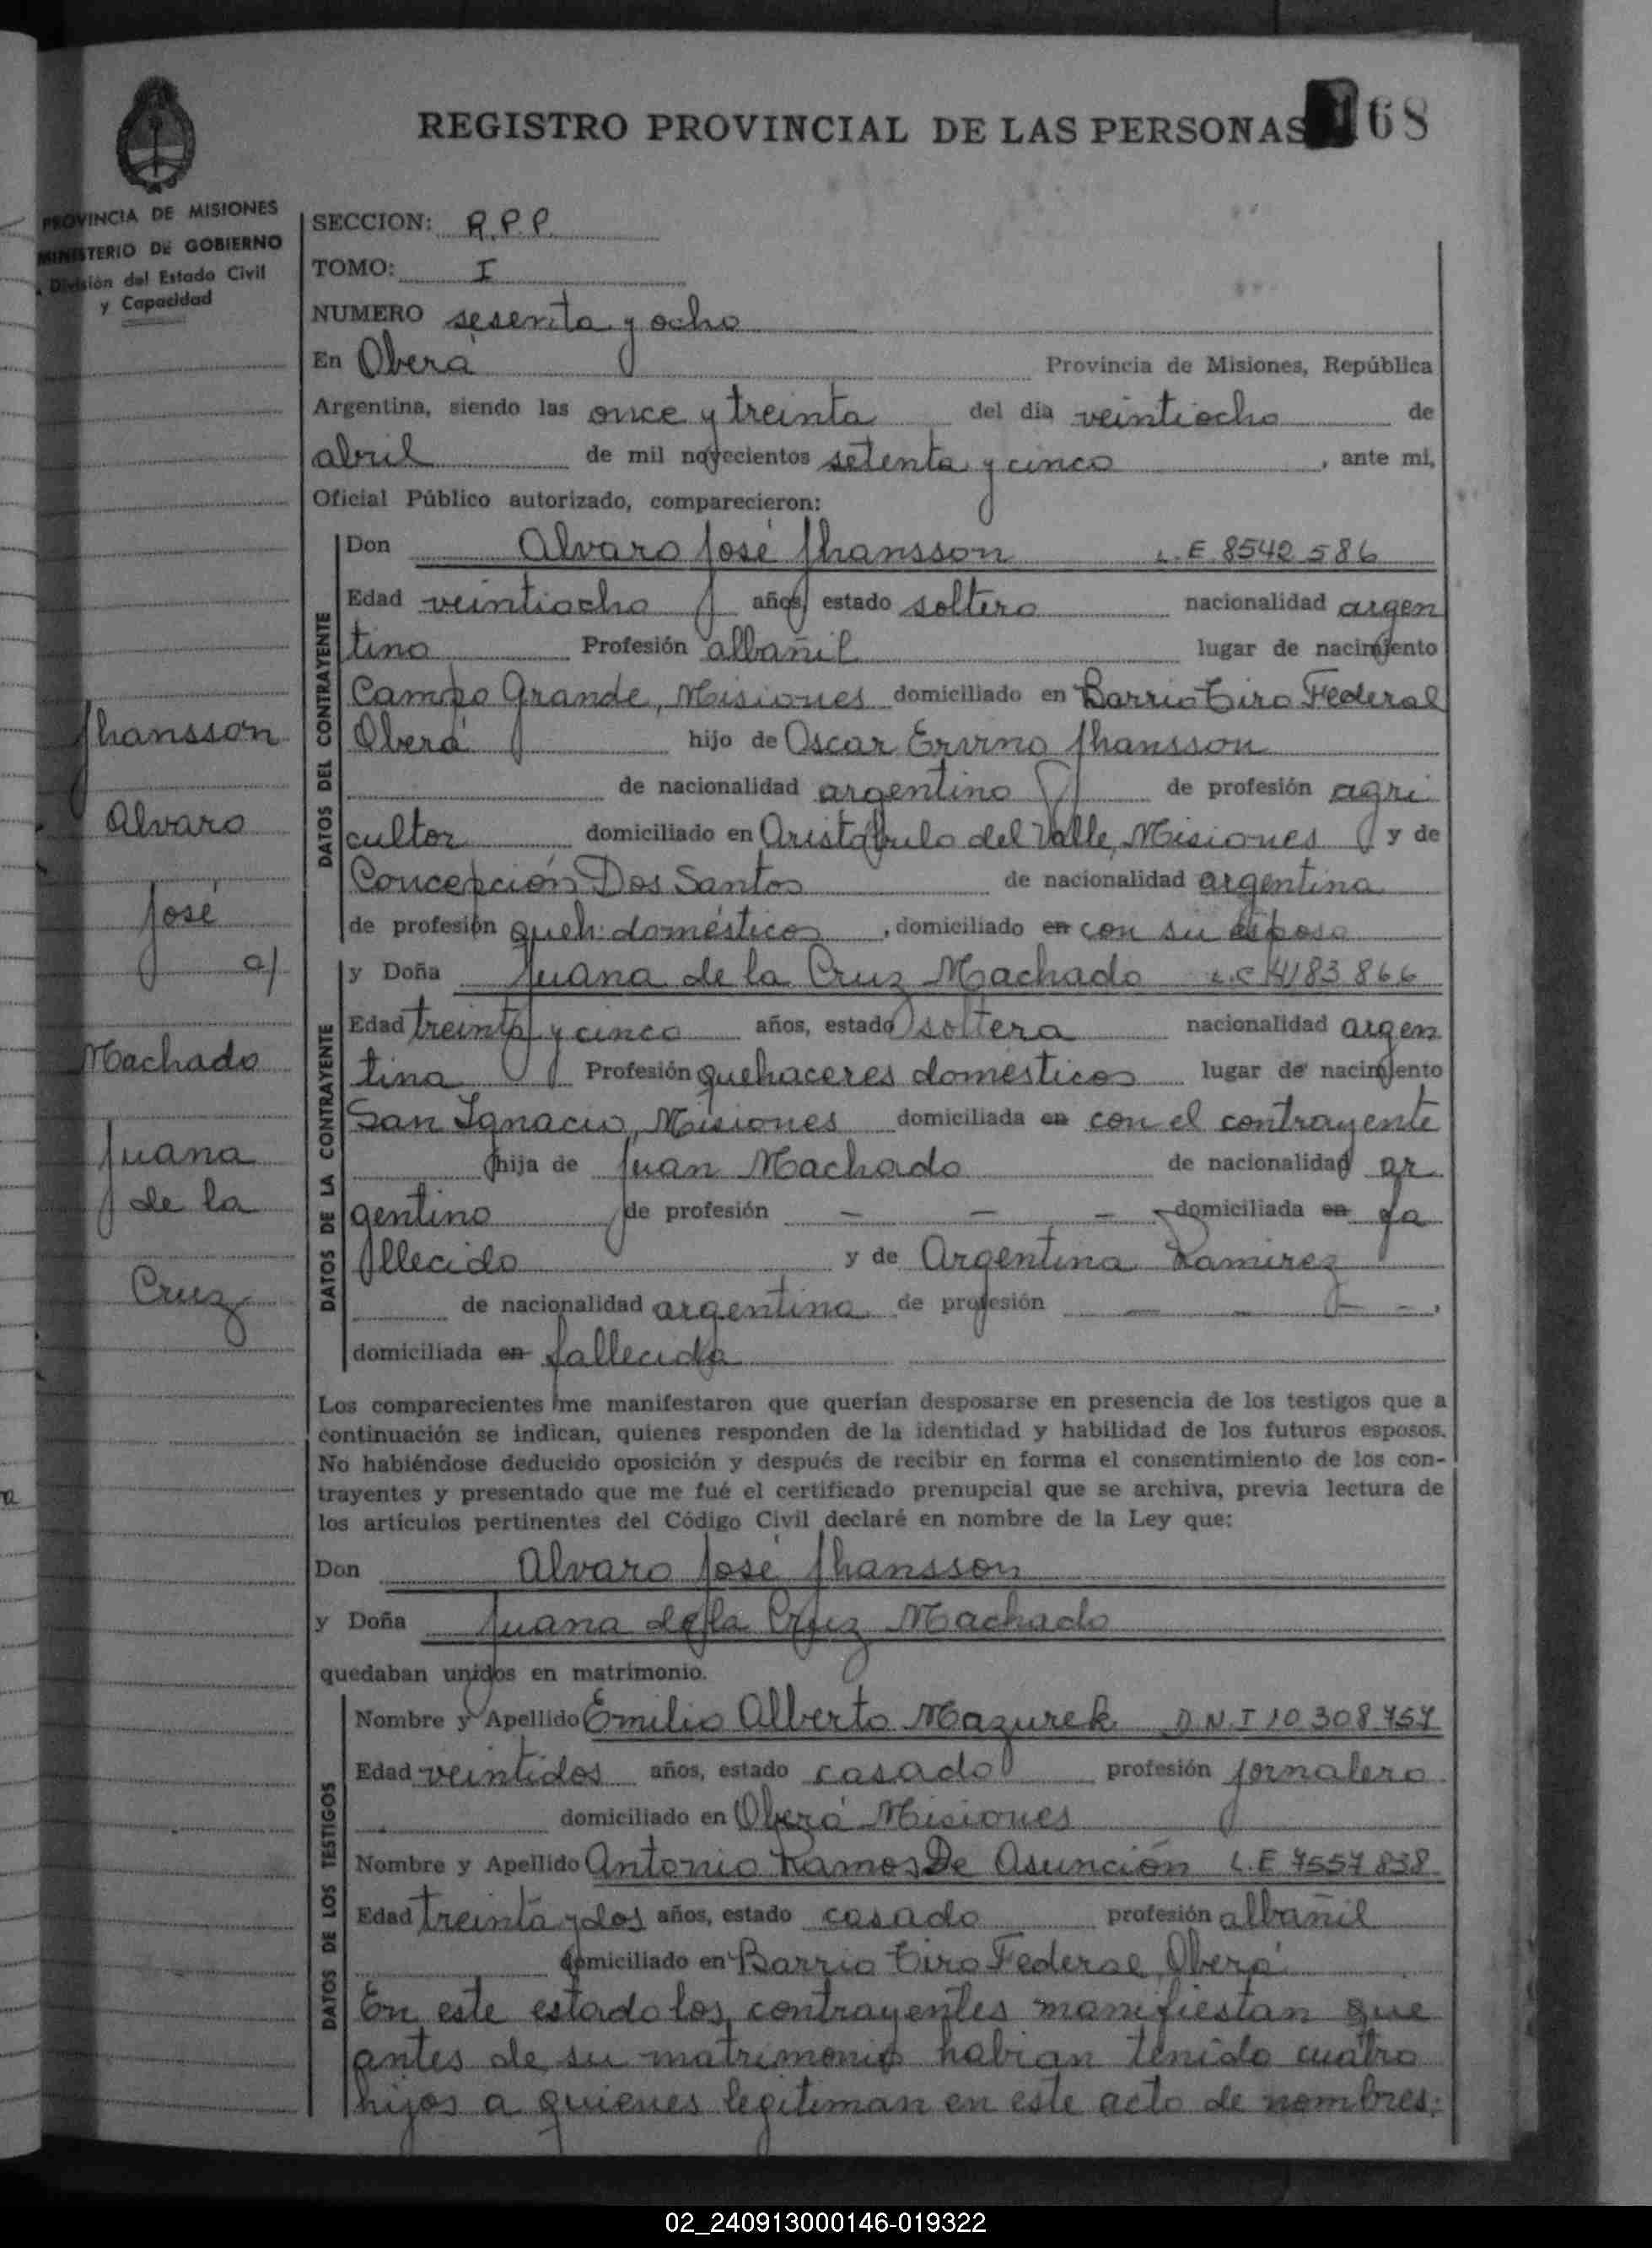 REGISTRO PROVINCIAL DE LAS PERSONAS 68
PROVINCIA DE MISIONES
MINISTERIO DE GOBIERNO
División del Estado Civil
y Capacidad
SECCION: R.P.P.
TOMO: I
NUMERO sesenta y ocho
En Oberá Provincia de Misiones, República
Argentina, siendo las once y treinta del día veintiocho de
abril de mil novecientos setenta y cinco, ante mi,
Oficial Público autorizado, comparecieron:
DATOS DEL CONTRAYENTE
Don Alvaro José Jhansson L.E 8542 586
Edad veintiocho años, estado soltero nacionalidad argen
tino Profesión albañil lugar de nacimiento
Campo Grande, Misiones domiciliado en Barrio Tiro Federal
Oberá hijo de Oscar Jhansson
de nacionalidad argentino de profesión agri
cultor domiciliado en Aristóbulo del Valle, Misiones y de
Concepción Dos Santos de nacionalidad argentina
de profesión queh. domésticos, domiciliado en con su esposo
DATOS DE LA CONTRAYENTE
y Doña Juana de la Cruz Machado L.C 4183 866
Edad treinta y cinco años, estado soltera nacionalidad argen
tina Profesión quehaceres domésticos lugar de nacimiento
San Ignacio, Misiones domiciliada en con el contrayente
hija de Juan Machado de nacionalidad ar
gentino de profesión — — — domiciliada en fa
llecido y de Argentina Ramirez
de nacionalidad argentina de profesión — — — —,
domiciliada en fallecida
Los comparecientes me manifestaron que querían desposarse en presencia de los testigos que a
continuación se indican, quienes responden de la identidad y habilidad de los futuros esposos.
No habiéndose deducido oposición y después de recibir en forma el consentimiento de los con-
trayentes y presentado que me fué el certificado prenupcial que se archiva, previa lectura de
los artículos pertinentes del Código Civil declaré en nombre de la Ley que:
Don Alvaro José Jhansson
y Doña Juana de la Cruz Machado
quedaban unidos en matrimonio.
DATOS DE LOS TESTIGOS
Nombre y Apellido Emilio Alberto Mazurek D.N.I 10 308 757
Edad veintidos años, estado casado profesión jornalero
domiciliado en Oberá Misiones
Nombre y Apellido Antonio Ramos De Asunción L.E 7557 838
Edad treinta y dos años, estado casado profesión albañil
domiciliado en Barrio Tiro Federal Oberá
En este estado los contrayentes manifiestan que
antes de su matrimonio habian tenido cuatro
hijos a quienes legitiman en este acto de nombres:
Jhansson
Alvaro
José
c/
Machado
Juana
de la
Cruz
02_240913000146-019322